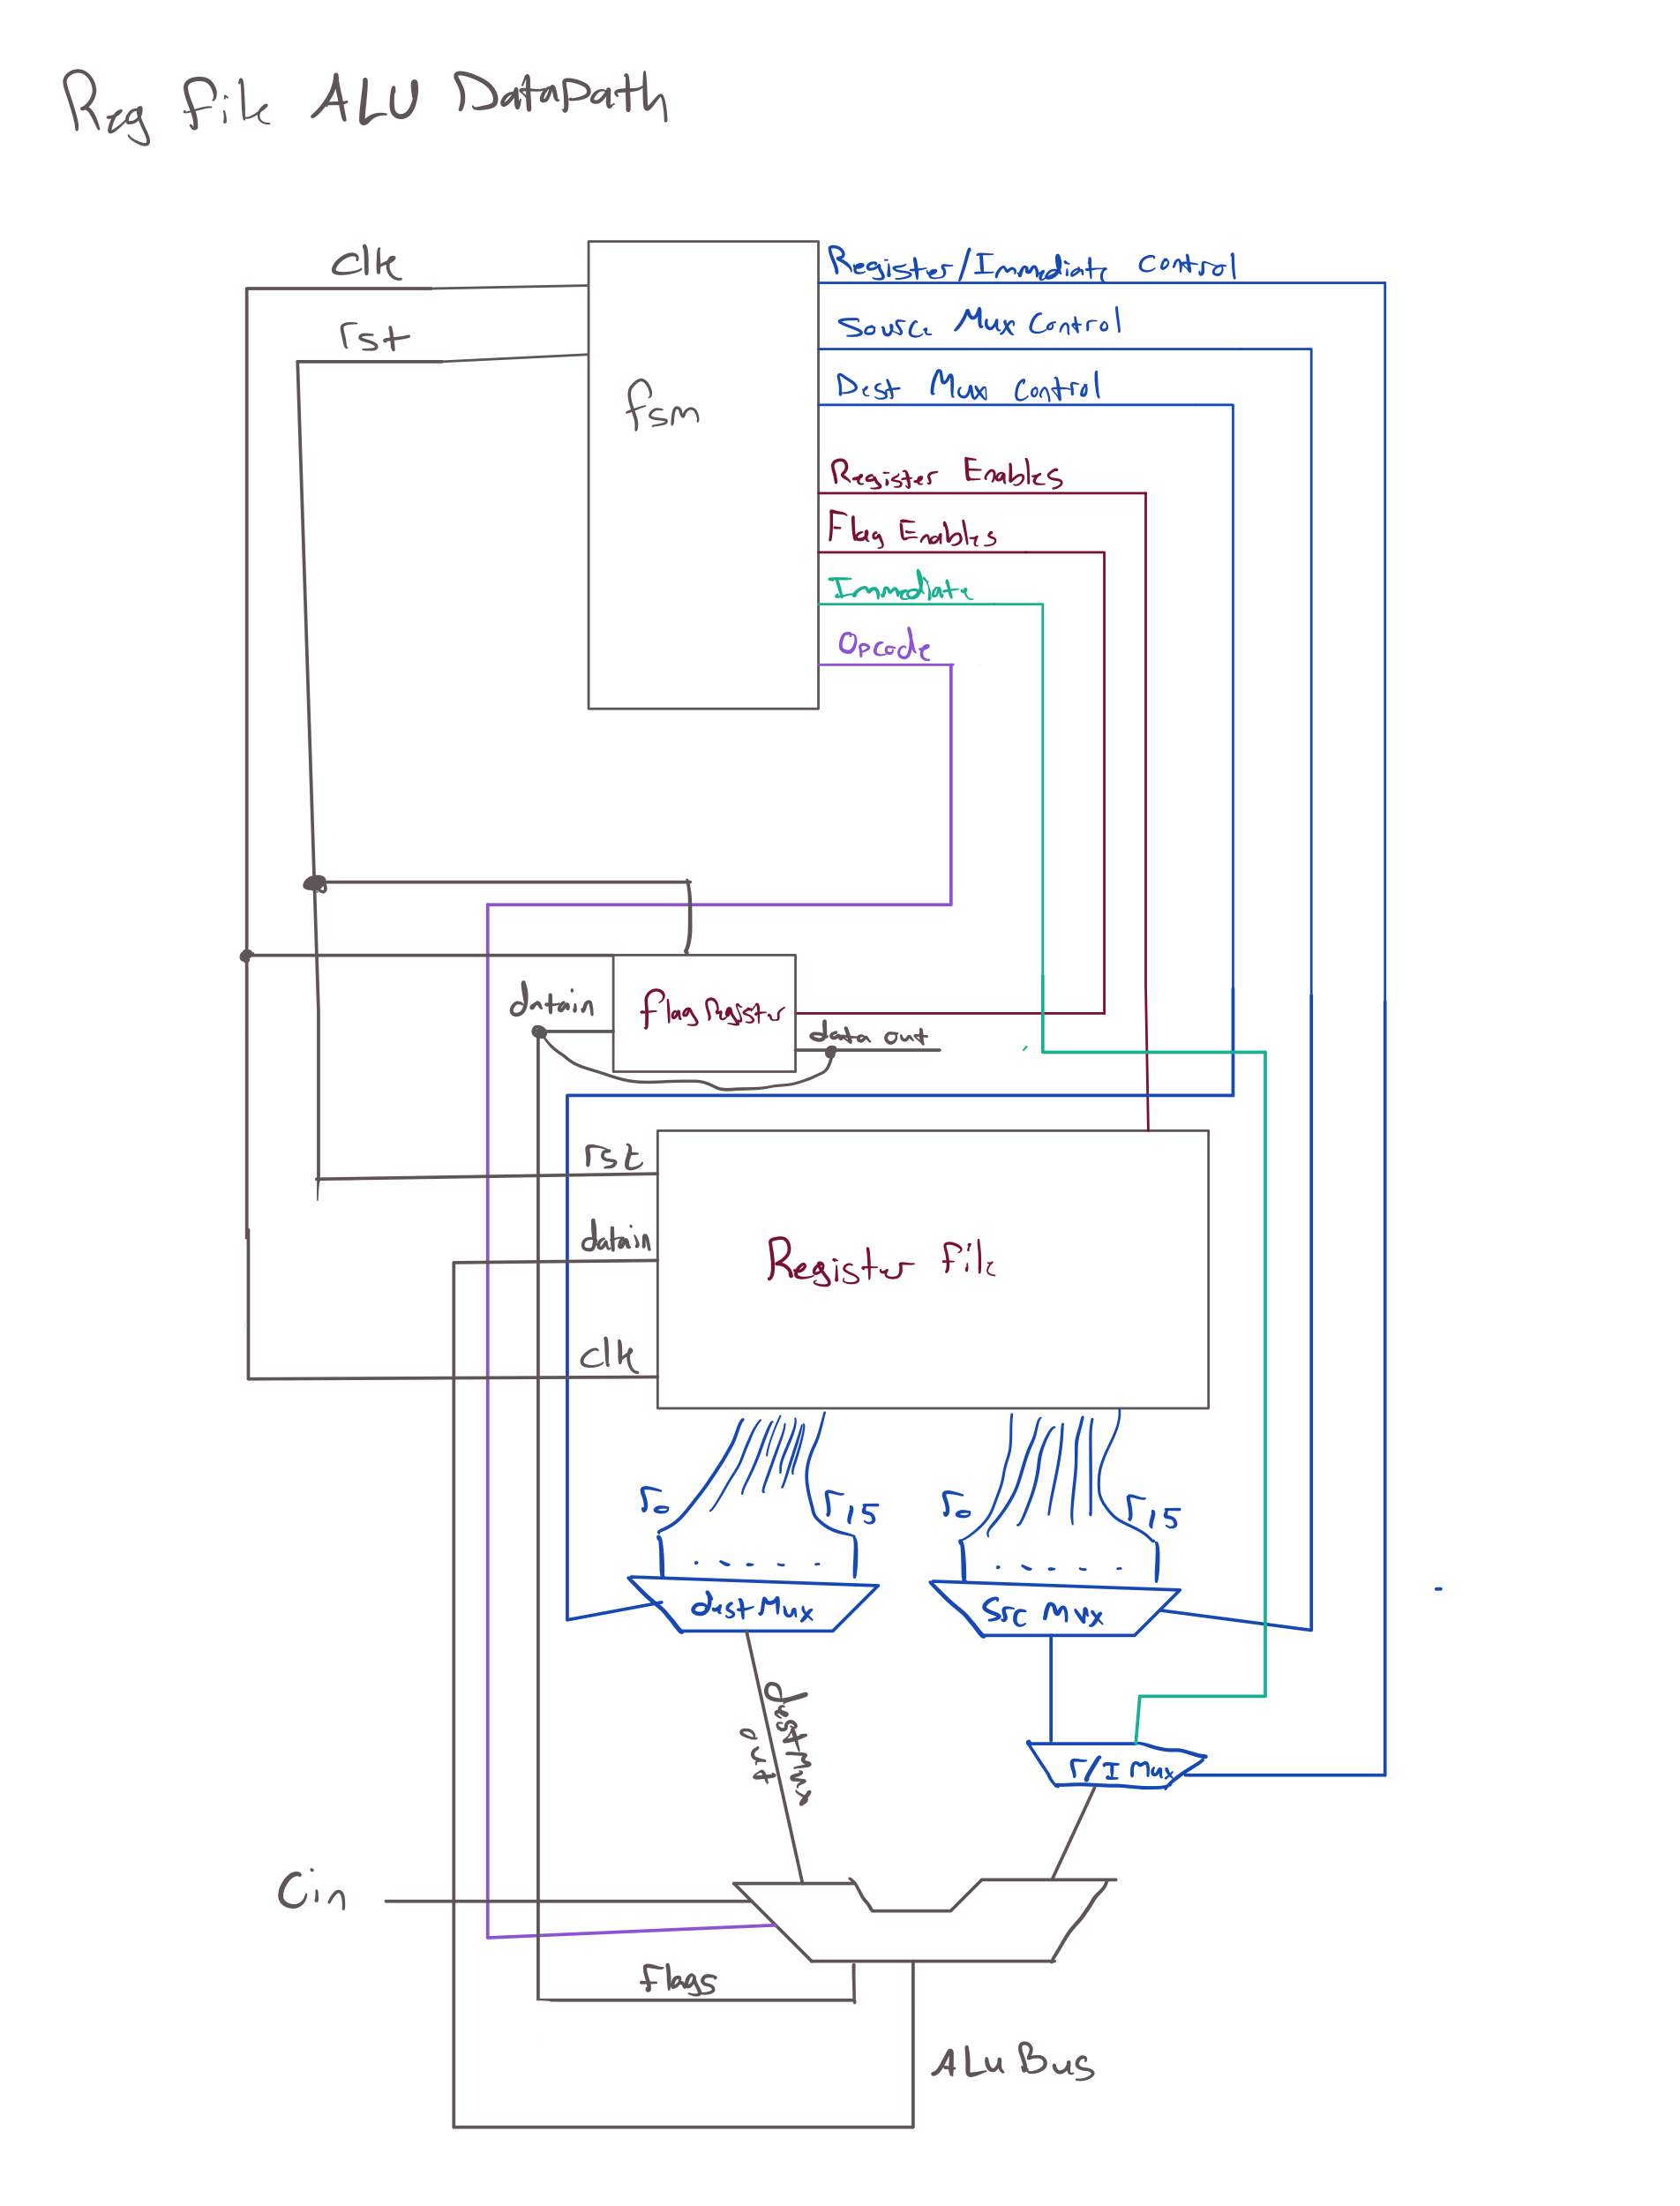 Reg File ALU DataPath
clk
rst
fsm
Register/Immediate Control
Source Mux Control
Dest Mux Control
Register Enables
Flag Enables
Immediate
Opcode
datain
flag Register
data out
rst
datain
clk
Register file
r0
r15
r0
r15
dest Mux
Src Mux
dest Mux
out
r/I Mux
Cin
flags
ALU Bus